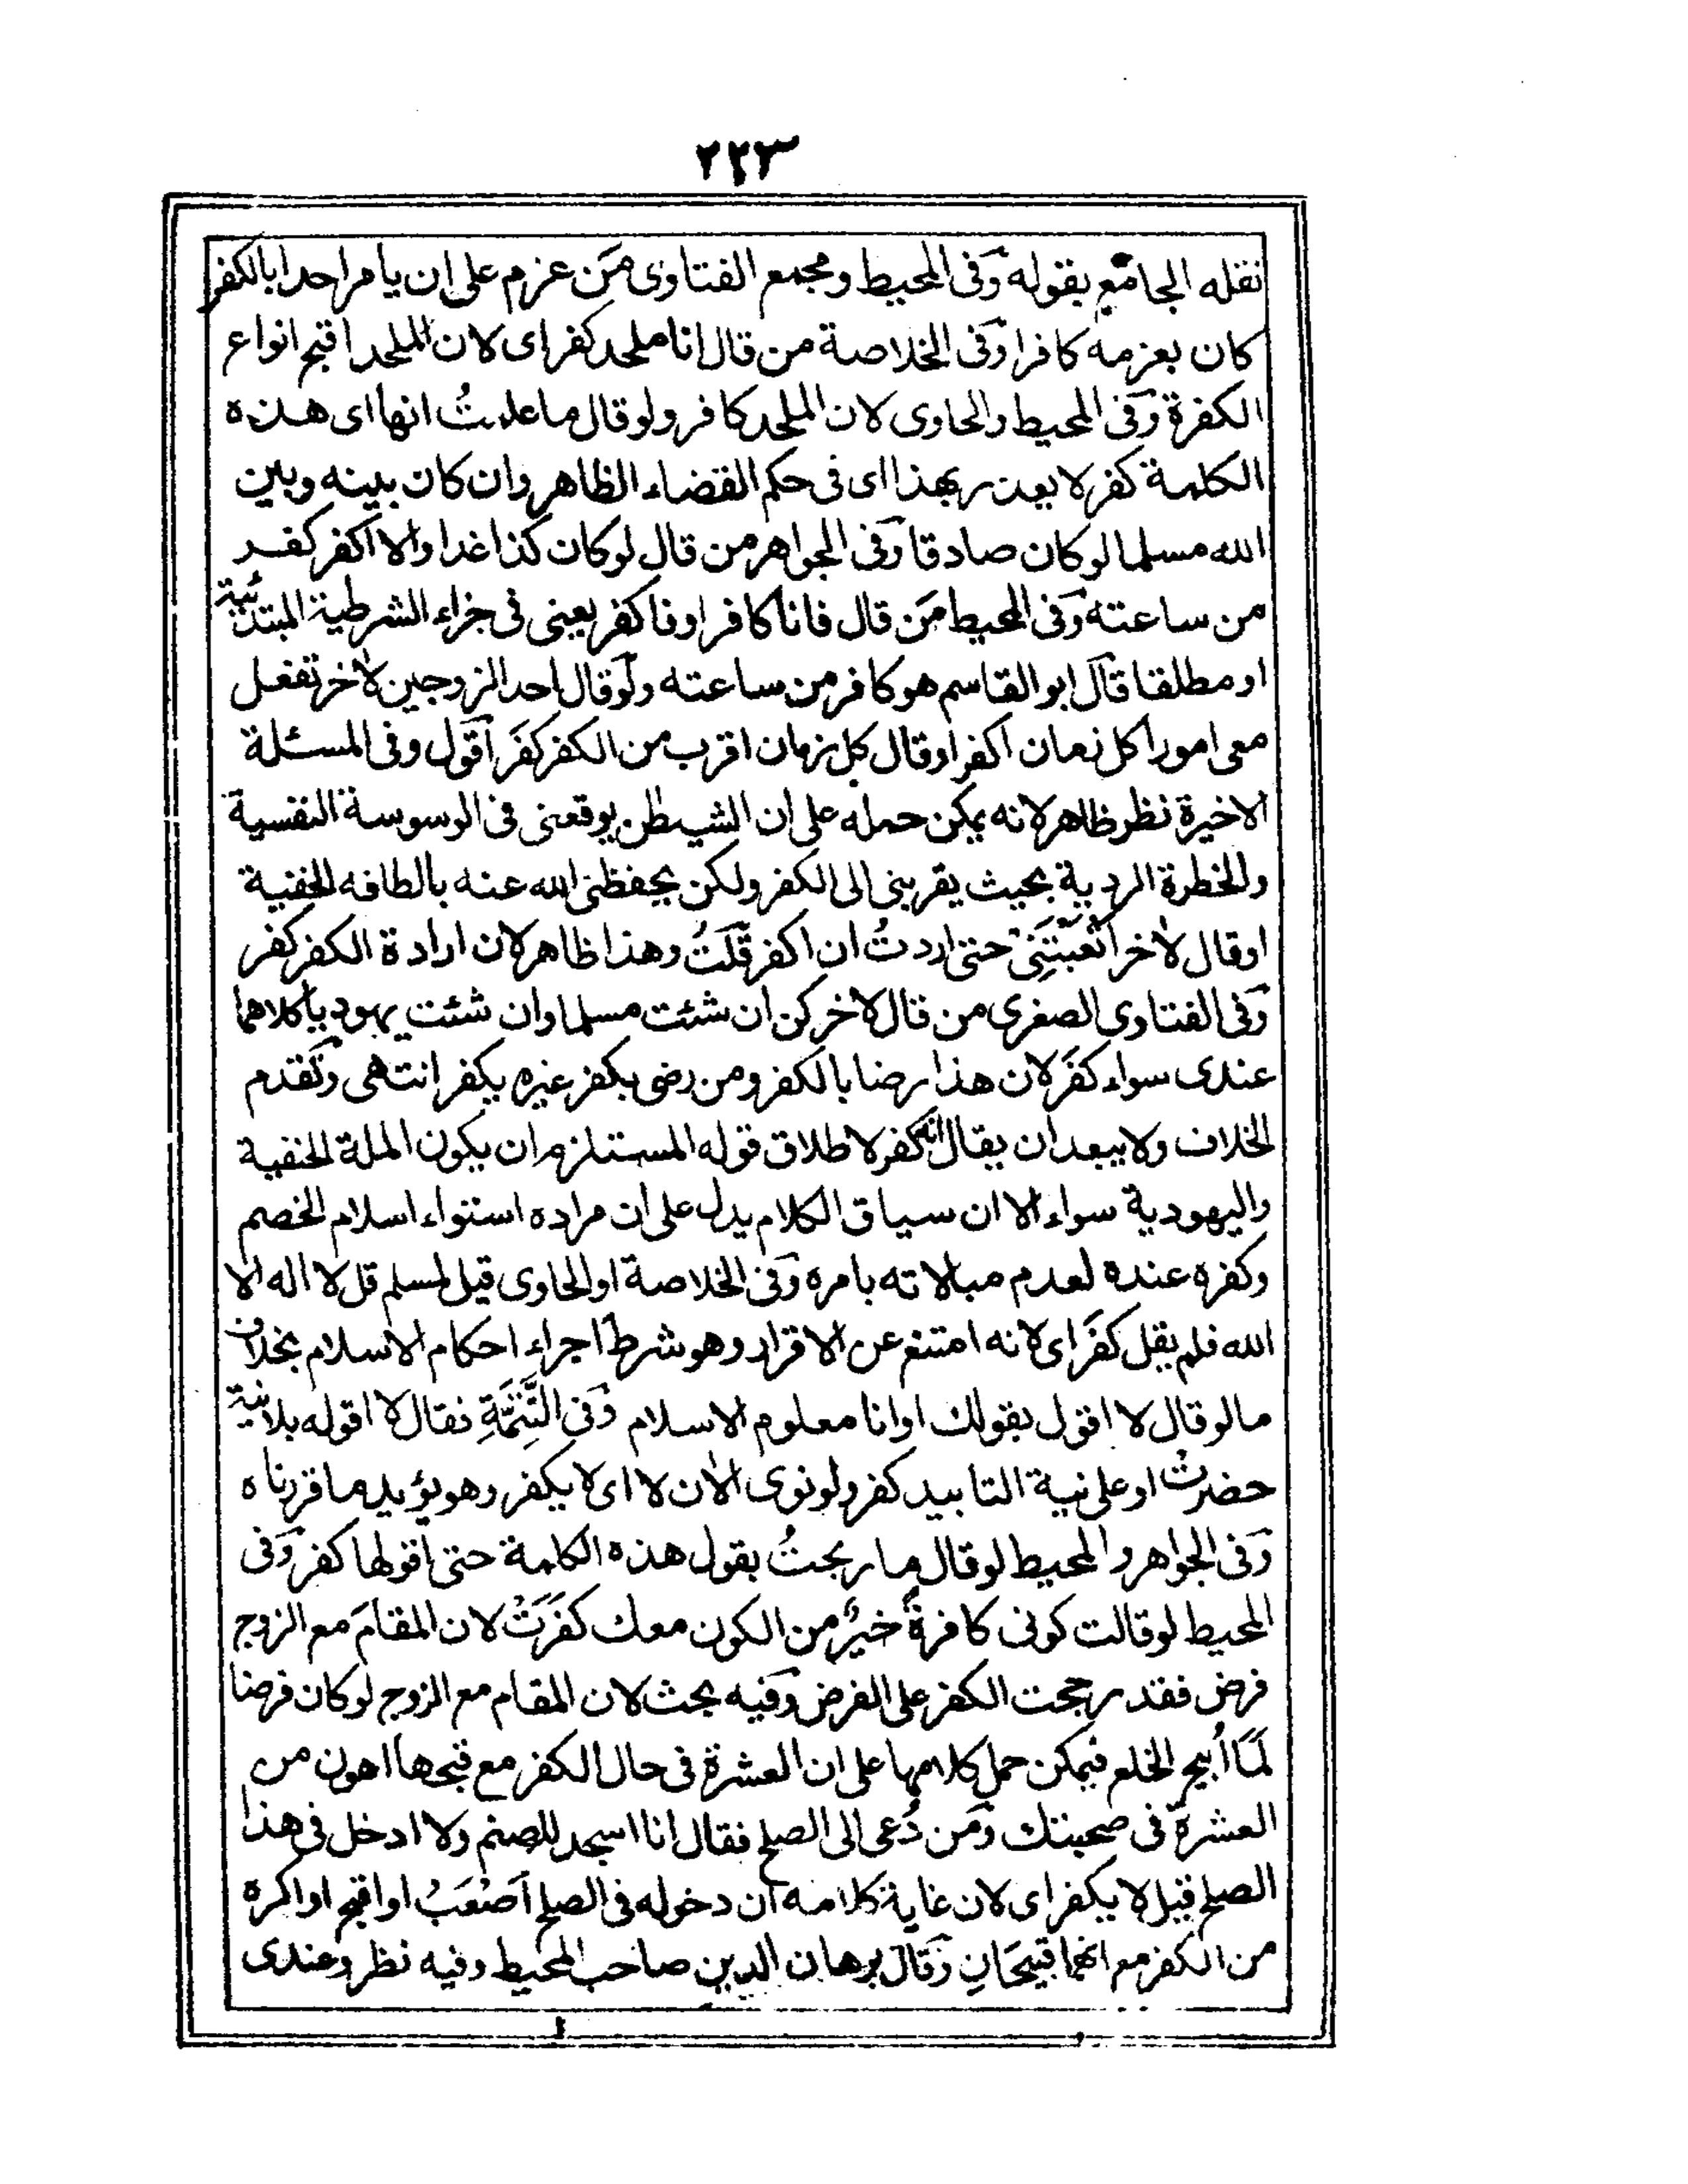 ٢٢٣
نقله الجامع بقوله وفى المحيط ومجمع الفتاوى من عزم على ان يامر احدا بالكفر
كان بعزمه كافرا وفى الخلاصة من قال انا ملحد كفر اى لان الملحد اقبح انواع
الكفرة وفى المحيط والحاوى لان الملحد كافر ولو قال ما علمتُ انها اى هذه
الكلمة كفر لا يعذر بهذا اى فى حكم القضاء الظاهر وان كان بينه وبين
الله مسلما لو كان صادقا وفى الجواهر من قال لو كان كذا غدا والا اكفر كفر
من ساعته وفى المحيط مَن قال فانا كافر او فاكفر يعنى فى جزاء الشرطية المبتدئية
او مطلقا قال ابو القاسم هو كافر من ساعته ولو قال احد الزوجين لاٰخر تفعل
معى امورا كل زمان اكفر او قال كل زمان اقرب من الكفر كفَر اقول وفى المسئلة
الاخيرة نظر ظاهر لانه يمكن حمله على ان الشيطٰن يوقعنى فى الوسوسة النفسية
والخطرة الردية بحيث يقربنى الى الكفر ولكن يحفظنى الله عنه بالطافه الخفية
او قال لاٰخر اتعبتَنِى حتى اردتُ ان اكفر قلتُ وهذا ظاهر لان ارادة الكفر كفر
وفى الفتاوى الصغرى من قال لاخر كن ان شئت مسلما وان شئت يهوديا كلاهما
عندى سواء كفَر لان هذا رضا بالكفر ومن رضى بكفر غيره يكفر انتهى وتقدم
الخلاف ولا يبعد ان يقال انه كفر لاطلاق قوله المستلزم ان يكون الملة الحنفية
واليهودية سواء الا ان سياق الكلام يدل على ان مراده استواء اسلام الخصم
وكفره عنده لعدم مبالاته بامره وفى الخلاصة او الحاوى قيل لمسلم قل لا اله الا
الله فلم يقل كفَر اى لانه امتنع عن الاقرار وهو شرط اجراء احكام الاسلام بخلاف
ما لو قال لا اقول بقولك او انا معلوم الاسلام وفى التَّتِمَّةِ فقال لا اقوله بلا نية
حضرتْ او على نية التابيد كفر ولو نوى الاٰن لا اى لا يكفر وهو يؤيد ما قررناه
وفى الجواهر والمحيط لو قال ما ربحتُ بقول هذه الكلمة حتى اقولها كفر وفى
المحيط لو قالت كونى كافرةً خيرٌ من الكون معك كفَرَتْ لان المقامَ مع الزوج
فرض فقد رجحت الكفر على الفرض وفيه بحث لان المقام مع الزوج لو كان فرضا
لَمَا اُبيح الخلع فيمكن حمل كلامها على ان العشرة فى حال الكفر مع قبحها اهون من
العشرة فى صحبتك ومَن دُعى الى الصلح فقال انا اسجد للصنم ولا ادخل فى هذا
الصلح قيل لا يكفر اى لان غاية كلامه ان دخوله فى الصلح اَصْعَبُ او اقبح او اكره
من الكفر مع انهما قبيحَانِ وقال برهان الدين صاحب المحيط وفيه نظر وعندى